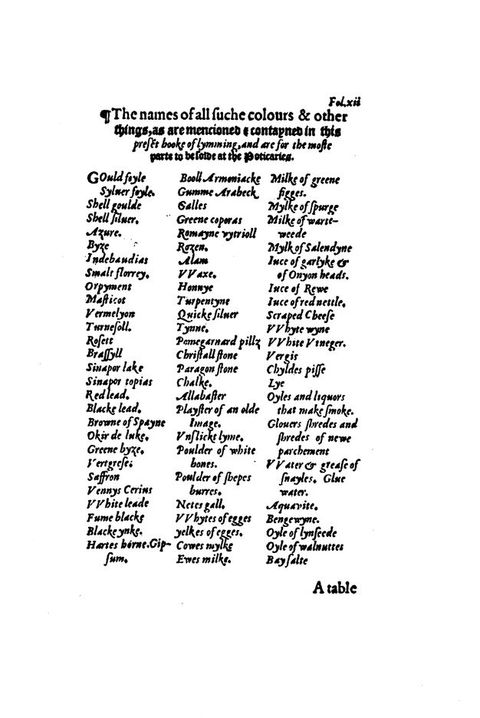 Fol.xii
¶The names of all ſuche colours & other
things, as are mencioned & contayned in this
preſēt booke of lymming, and are for the moſte
parte to be ſolde at the Poticaries.
GOuld foyle
Sylner foyle.
Shell goulde
Shell ſiluer.
Azure.
Byze
Indebaudias
Smalt florrey.
Orpyment
Maſticot
Vermelyon
Turneſoll.
Roſett
Braſſyll
Sinapor lake
Sinapor topias
Red lead.
Blacke lead.
Browne of Spayne
Okir de luke.
Greene byze.
Vertgreſe.
Saffron
Vennys Cerius
VVhite leade
Fume blacke
Blacke ynke.
Hartes horne. Gip-
ſum.
Booll Armoniacke
Gumme Arabeck
Galles
Greene coperas
Romayne vytrioll
Rozen.
Alam
VVaxe.
Honnye
Turpentyne
Quicke ſiluer
Tynne.
Pomegarnard pillz
Chriſtall ſtone
Paragon ſtone
Chalke.
Allabaſter
Playſter of an olde
Image.
Vnſlickt lyme.
Poulder of white
bones.
Poulder of ſhepes
burres.
Netes gall.
VVhytes of egges
yelkes of egges.
Cowes mylke
Ewes milke.
Milke of greene
figges.
Mylke of ſpurge
Milke of warte-
weede
Mylk of Salendyne
Iuce of garlyke &
of Onyon heads.
Iuce of Rewe
Iuce of red nettle.
Scraped Cheeſe
VVhyte wyne
VVhite Vineger.
Vergis
Chyldes piſſe
Lye
Oyles and liquors
that make ſmoke.
Glouers ſhredes and
ſhredes of newe
parchement
VVater & greaſe of
ſnayles. Glue
water.
Aquavite.
Bengewyne.
Oyle of lynſeede
Oyle of walnuttes
Bay ſalte
A table